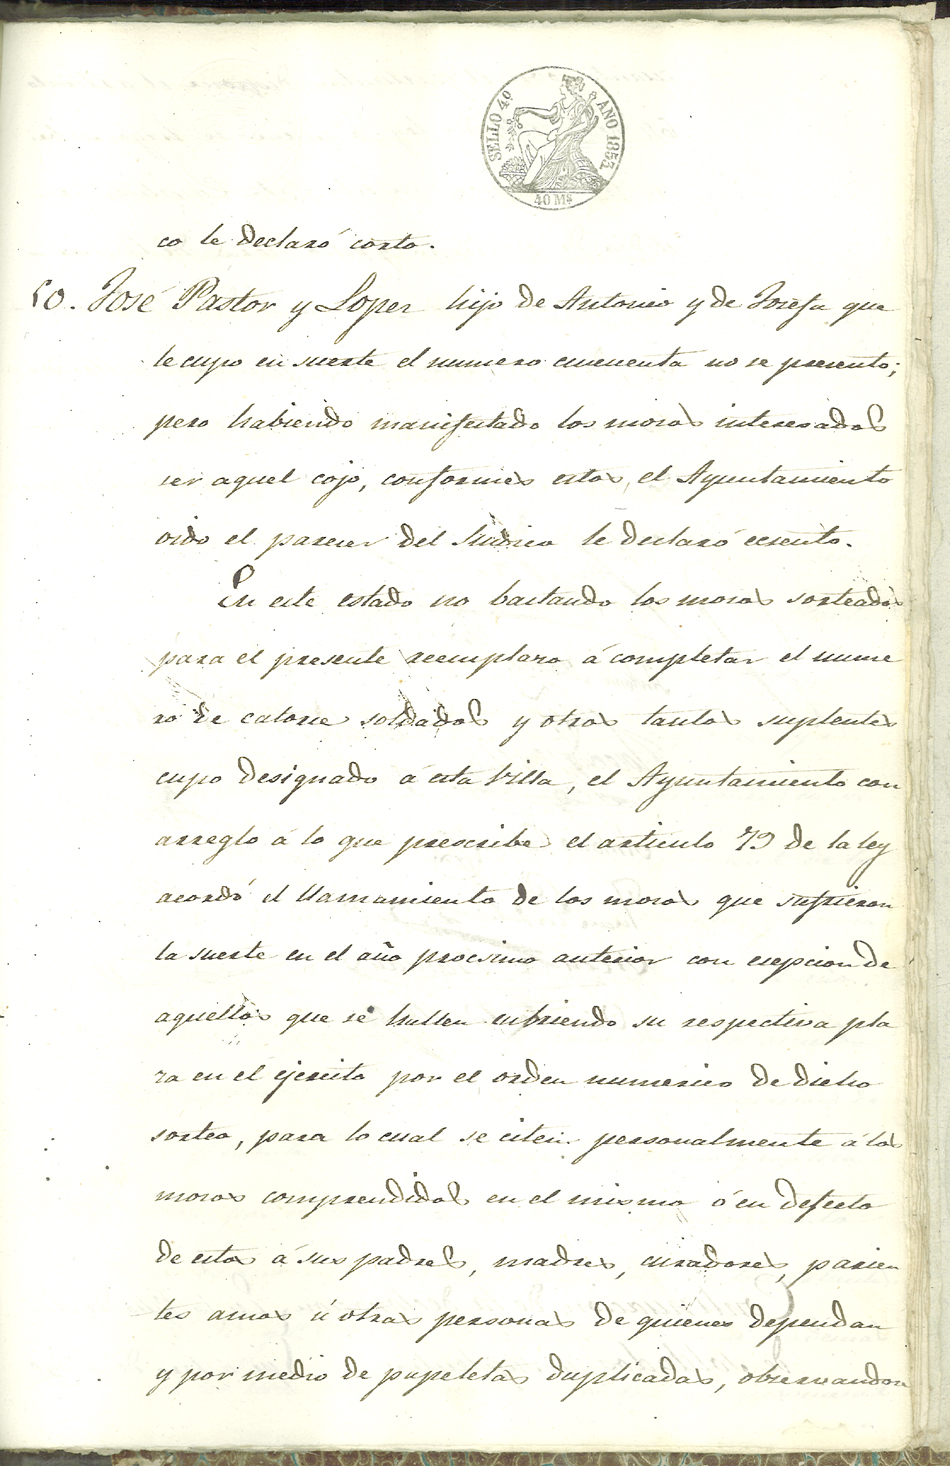 SELLO 4º AÑO 1853.
40 Ms
co le declaró corto.
50. José Pastor y Lopez hijo de Antonio y de Josefa que
le cupo en suerte el numero cincuenta no se presento;
pero habiendo manifestado los mozos interesados
ser aquel cojo, conformes estos, el Ayuntamiento
oido el parecer del Sindico le declaró ecsento.
En este estado no bastando los mozos sorteados
para el presente reemplazo á completar el nume
ro de catorce soldados y otros tantos suplentes
cupo designado á esta Villa, el Ayuntamiento con
arreglo á lo que prescribe el articulo 79 de la ley
acordó el llamamiento de los mozos que sufrieron
la suerte en el año procsimo anterior con esepcion de
aquellos que se hallen cubriendo su respectiva pla
za en el ejercito por el orden numerico de dicho
sorteo, para lo cual se citen personalmente á los
mozos comprendidos en el mismo ó en defecto
de estos á sus padres, madres, curadores, parien
tes amos ú otras personas de quienes dependan
y por medio de papeletas duplicadas, observandose